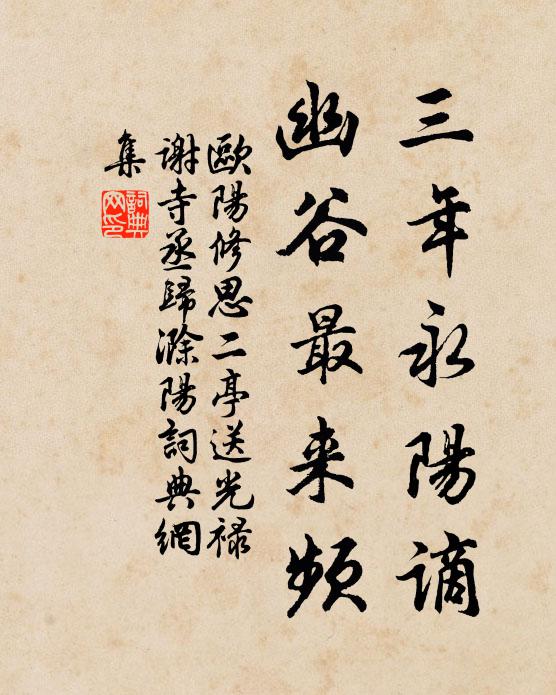 三年永陽謫
幽谷最来頻
歐陽修思二亭送光禄
謝寺丞歸滁陽詞典網
集
詞典
网印